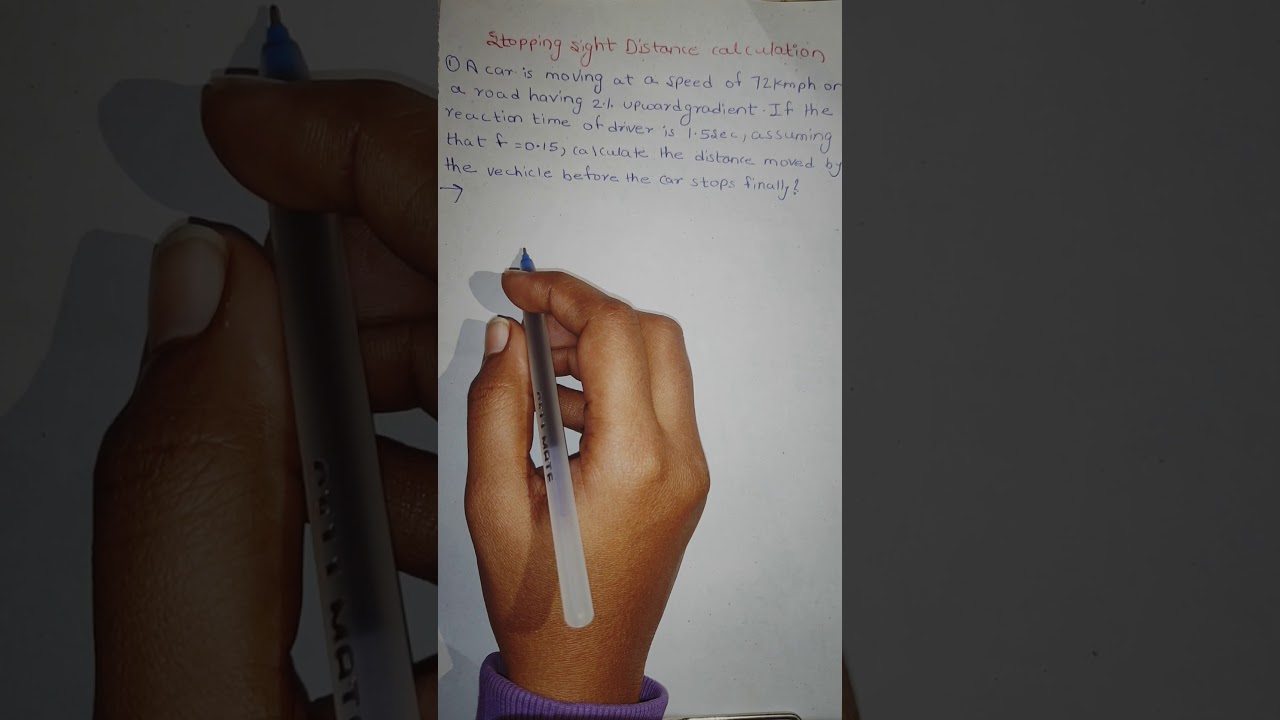 Stopping sight Distance calculation
① A car is moving at a speed of 72kmph on
a road having 2% upward gradient. If the
reaction time of driver is 1.5sec, assuming
that f = 0.15, calculate the distance moved by
the vechicle before the car stops finally?
→